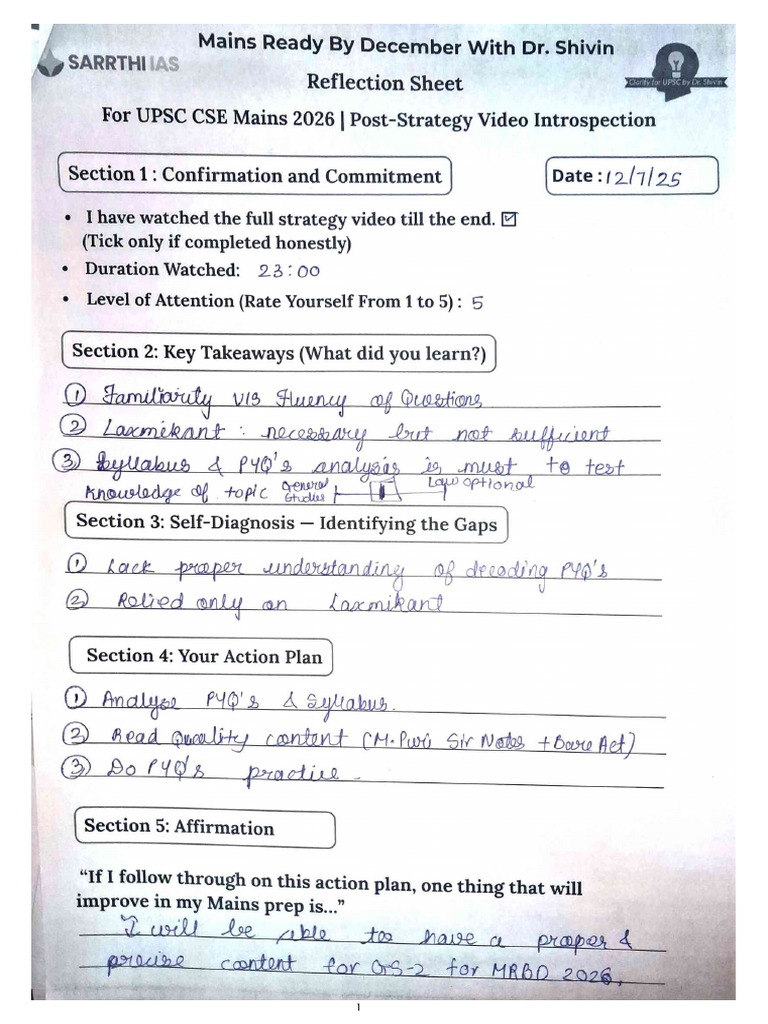 Mains Ready By December With Dr. Shivin
SARRTHI IAS
Clarity for UPSC by Dr. Shivin
Reflection Sheet
For UPSC CSE Mains 2026 | Post-Strategy Video Introspection
Section 1 : Confirmation and Commitment
Date : 12/7/25
• I have watched the full strategy video till the end. ☑
(Tick only if completed honestly)
• Duration Watched: 23:00
• Level of Attention (Rate Yourself From 1 to 5) : 5
Section 2: Key Takeaways (What did you learn?)
① Familiarity v/s Fluency of Questions
② Laxmikant : necessary but not sufficient
③ Syllabus & PYQ's analysis is must to test
knowledge of topic General Studies Law optional
Section 3: Self-Diagnosis — Identifying the Gaps
① Lack proper understanding of decoding PYQ's
② Relied only on Laxmikant
Section 4: Your Action Plan
① Analyse PYQ's & Syllabus.
② Read Quality content (M. Puri Sir Notes + Bare Act)
③ Do PYQ's practice
Section 5: Affirmation
“If I follow through on this action plan, one thing that will
improve in my Mains prep is...”
I will be able too have a proper &
precise content for GS-2 for MRBD 2026.
1